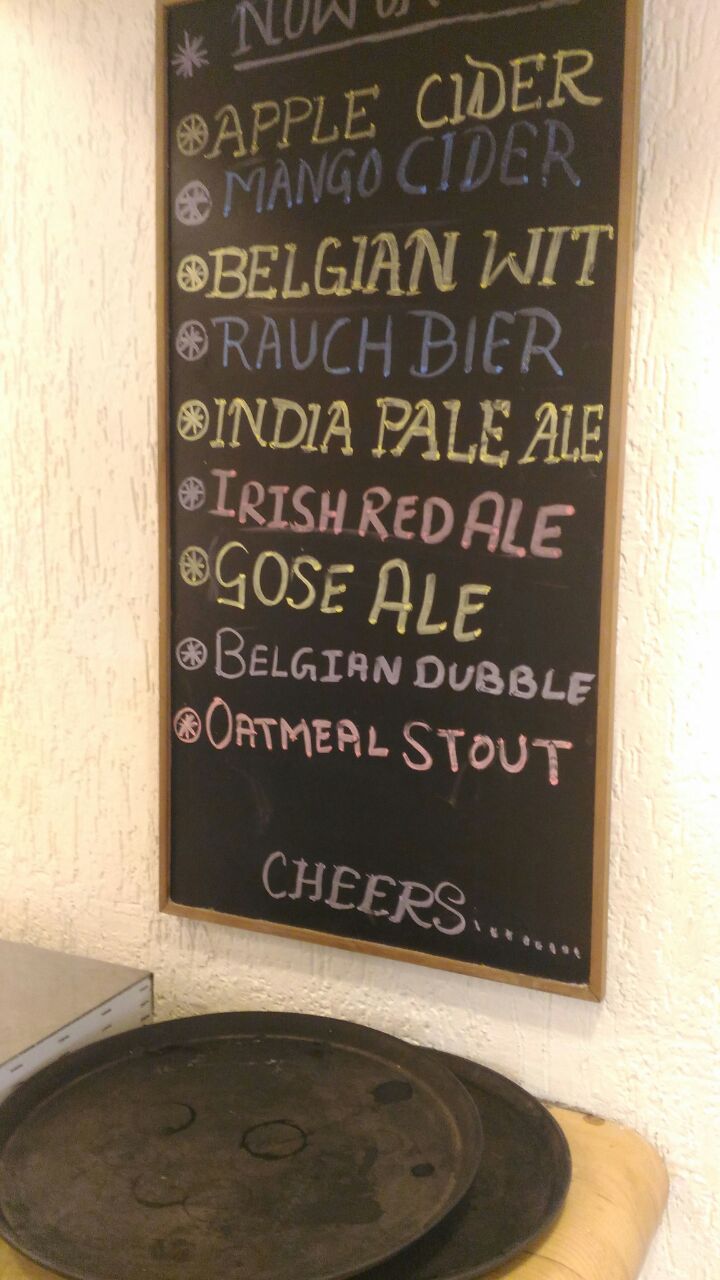 NOW
APPLE CIDER
MANGO CIDER
BELGIAN WIT
RAUCH BIER
INDIA PALE ALE
IRISH RED ALE
GOSE ALE
BELGIAN DUBBLE
OATMEAL STOUT
CHEERS.........